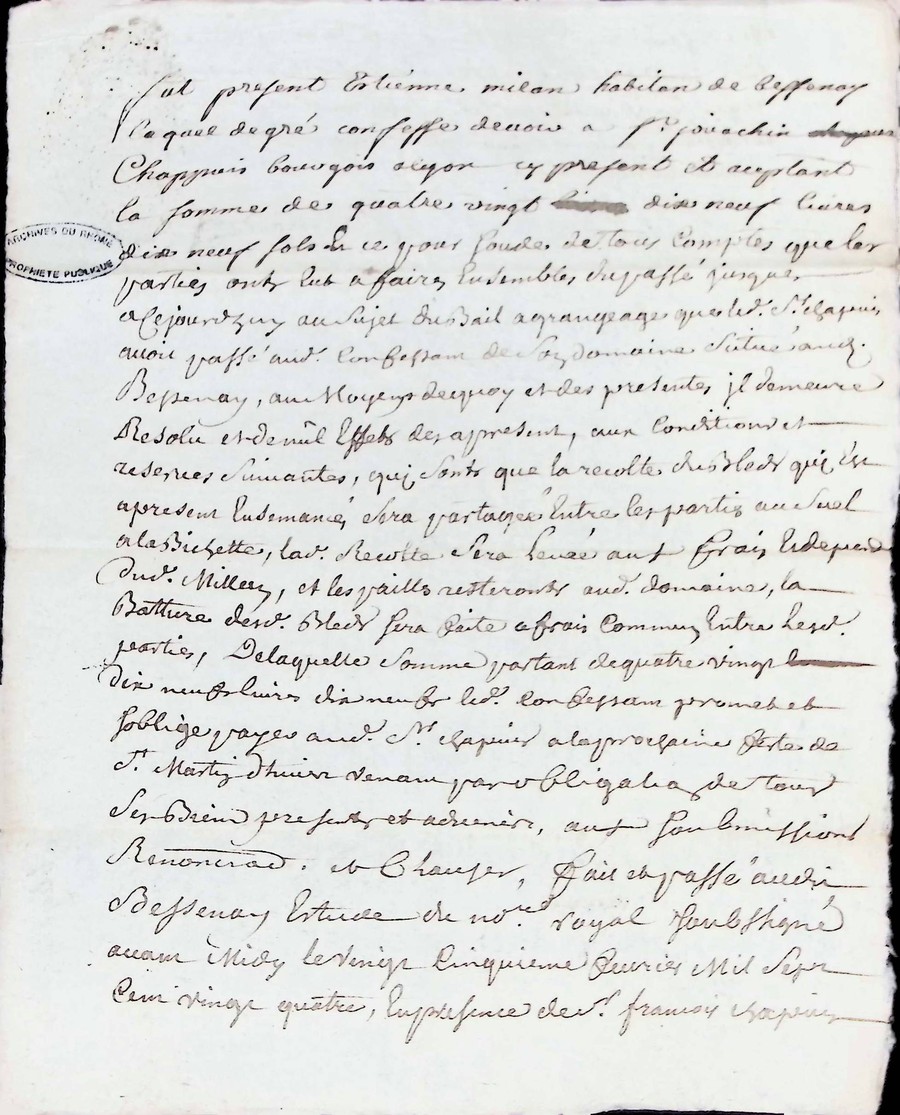 fut present Estienne milan habitan de bessenay
laquel de gré confesse devoir a Sr. jouachin
Chappuis bourgois alyon cy present et aceptant
la somme de quatre vingt dix neuf livres
dix neuf sols Et ce pour soude de tous Comptes que les
ARCHIVES DU RHONE
PROPRIETE PUBLIQUE
parties onts Eut a faires Ensembles du passé jusques
a Cejourdhuy au Sujet du Bail a grangeage que led. Sr. chapuis
avoit passé aud. Confessant de Son domaine Scitué aud.
Bessenay, au Moyens de quoy et des presentes jl demeure
Resolu et de nül Effets des apresent, aux Conditions et
reserves Suivantes, qui Sonts que la recolte du Bleds qui Est
apresent Ensemancé, Sera partagée Entre les partis au Suel
a la Bichette, lad. Recolte Sera levée aux frais Et depend
dud. Millan, et les pailles resteronts aud. domaine, la
Batture desd. Bleds Sera faite a frais Commun Entre lesd.
parties, De laquelle Somme partant de quatre vingt
dix neufs livres dix neufs led. Confessant promet et
soblige payer aud. Sr. chapuis a la prochaine feste de
St. Martin dhiver venant par obligation de tous
Ses Biens presents et advenirs, aux Soubmissions
Renonciaõ. et Clauses, fait et passé audit
Bessenay Estude du nore. royal Soubssigné
avant Midy le vingt Cinquieme fevrier Mil Sept
Cent vingt quatre, En presence de Sr. francois chapuis